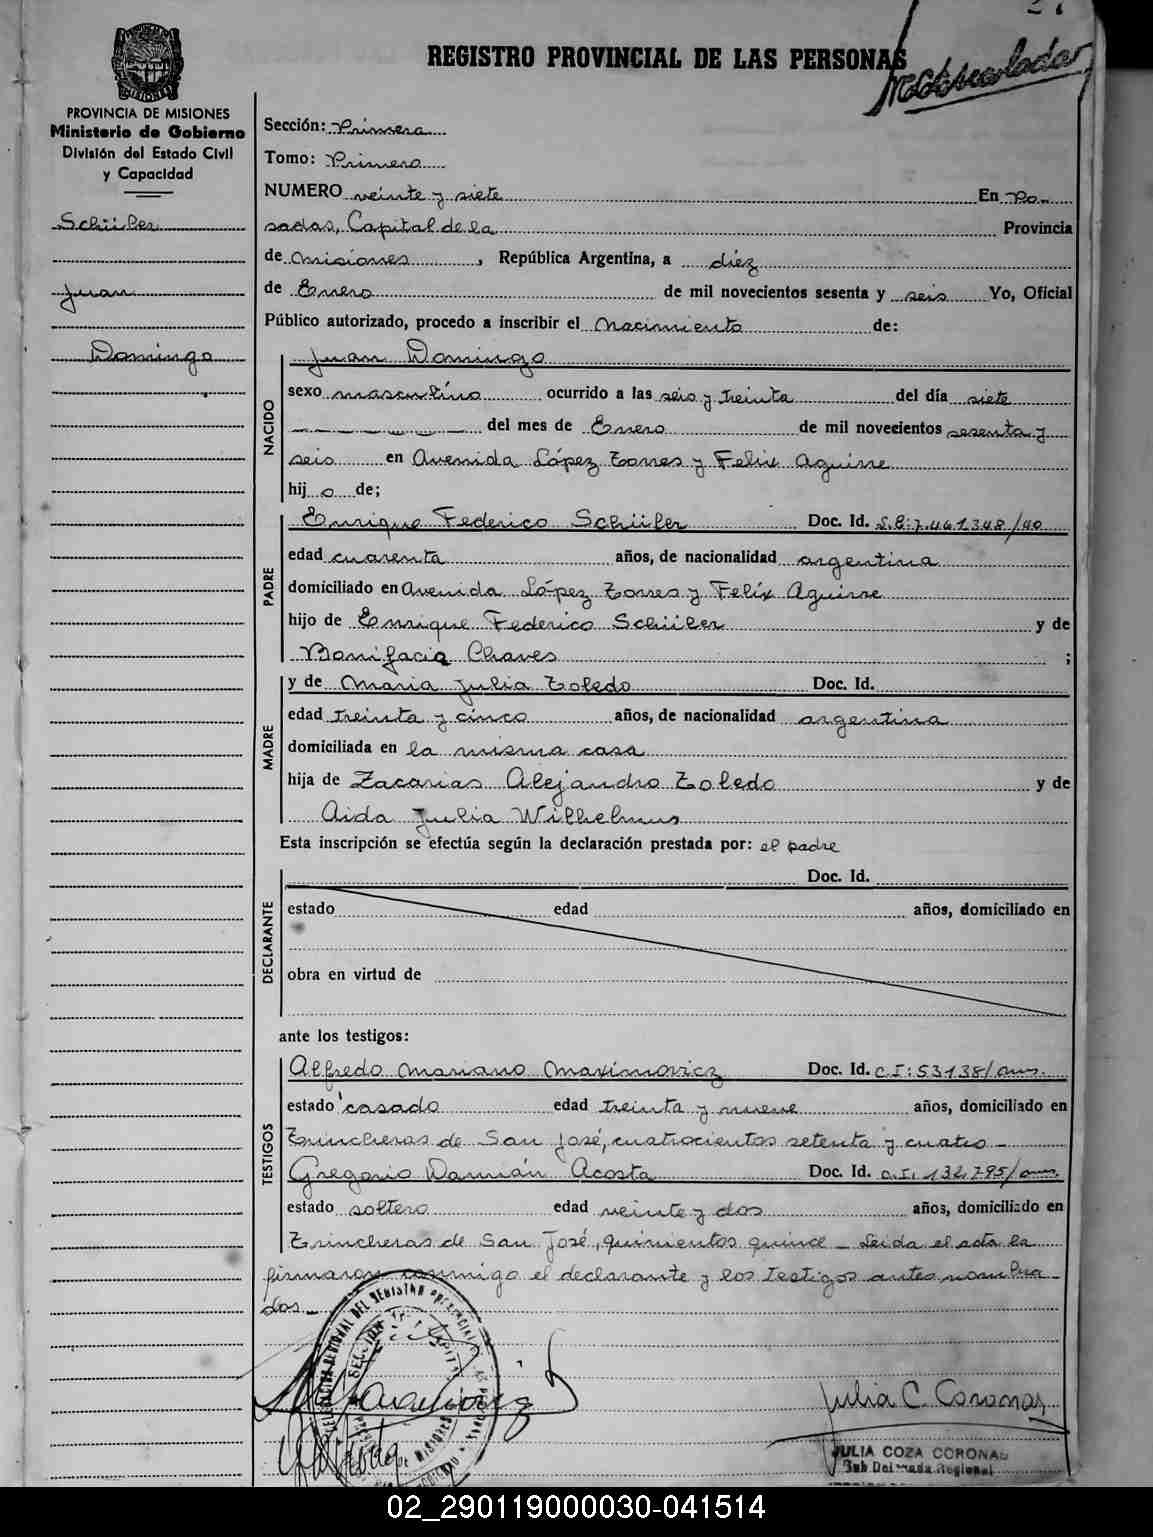 REGISTRO PROVINCIAL DE LAS PERSONAS
PROVINCIA DE MISIONES
Ministerio de Gobierno
División del Estado Civil
y Capacidad
Schüler
Juan
Domingo
Sección: Primera
Tomo: Primero
NUMERO veinte y siete En Po-
sadas, Capital de la Provincia
de Misiones, República Argentina, a diéz
de Enero de mil novecientos sesenta y seis Yo, Oficial
Público autorizado, procedo a inscribir el Nacimiento de:
NACIDO
Juan Domingo
sexo masculino ocurrido a las seis y treinta del día siete
del mes de Enero de mil novecientos sesenta y
seis en Avenida López Torres y Felix Aguirre
hijo de;
PADRE
Enrique Federico Schüler Doc. Id. 7.461.348/40
edad cuarenta años, de nacionalidad argentina
domiciliado en Avenida López Torres y Felíx Aguirre
hijo de Enrique Federico Schüler y de
Bonifacia Chaves ;
MADRE
y de Maria Julia Toledo Doc. Id.
edad treinta y cinco años, de nacionalidad argentina
domiciliada en la misma casa
hija de Zacarias Alejandro Toledo y de
Aida Julia Wilhelmus
Esta inscripción se efectúa según la declaración prestada por: el padre
DECLARANTE
Doc. Id.
estado edad años, domiciliado en
obra en virtud de
ante los testigos:
TESTIGOS
Alfredo Mariano Maximovicz Doc. Id. C.I: 53138/
estado casado edad treinta y nueve años, domiciliado en
Trincheras de San José, cuatrocientos setenta y cuatro -
Gregorio Damián Acosta Doc. Id. C.I. 132.795/
estado soltero edad veinte y dos años, domiciliado en
Trincheras de San José, quinientos quince - Leida el acta la
firmaron conmigo el declarante y los testigos antes nombra-
dos -
Julia C. Coronas
JULIA COZA CORONAS
Sub Delegada Regional
02_290119000030-041514